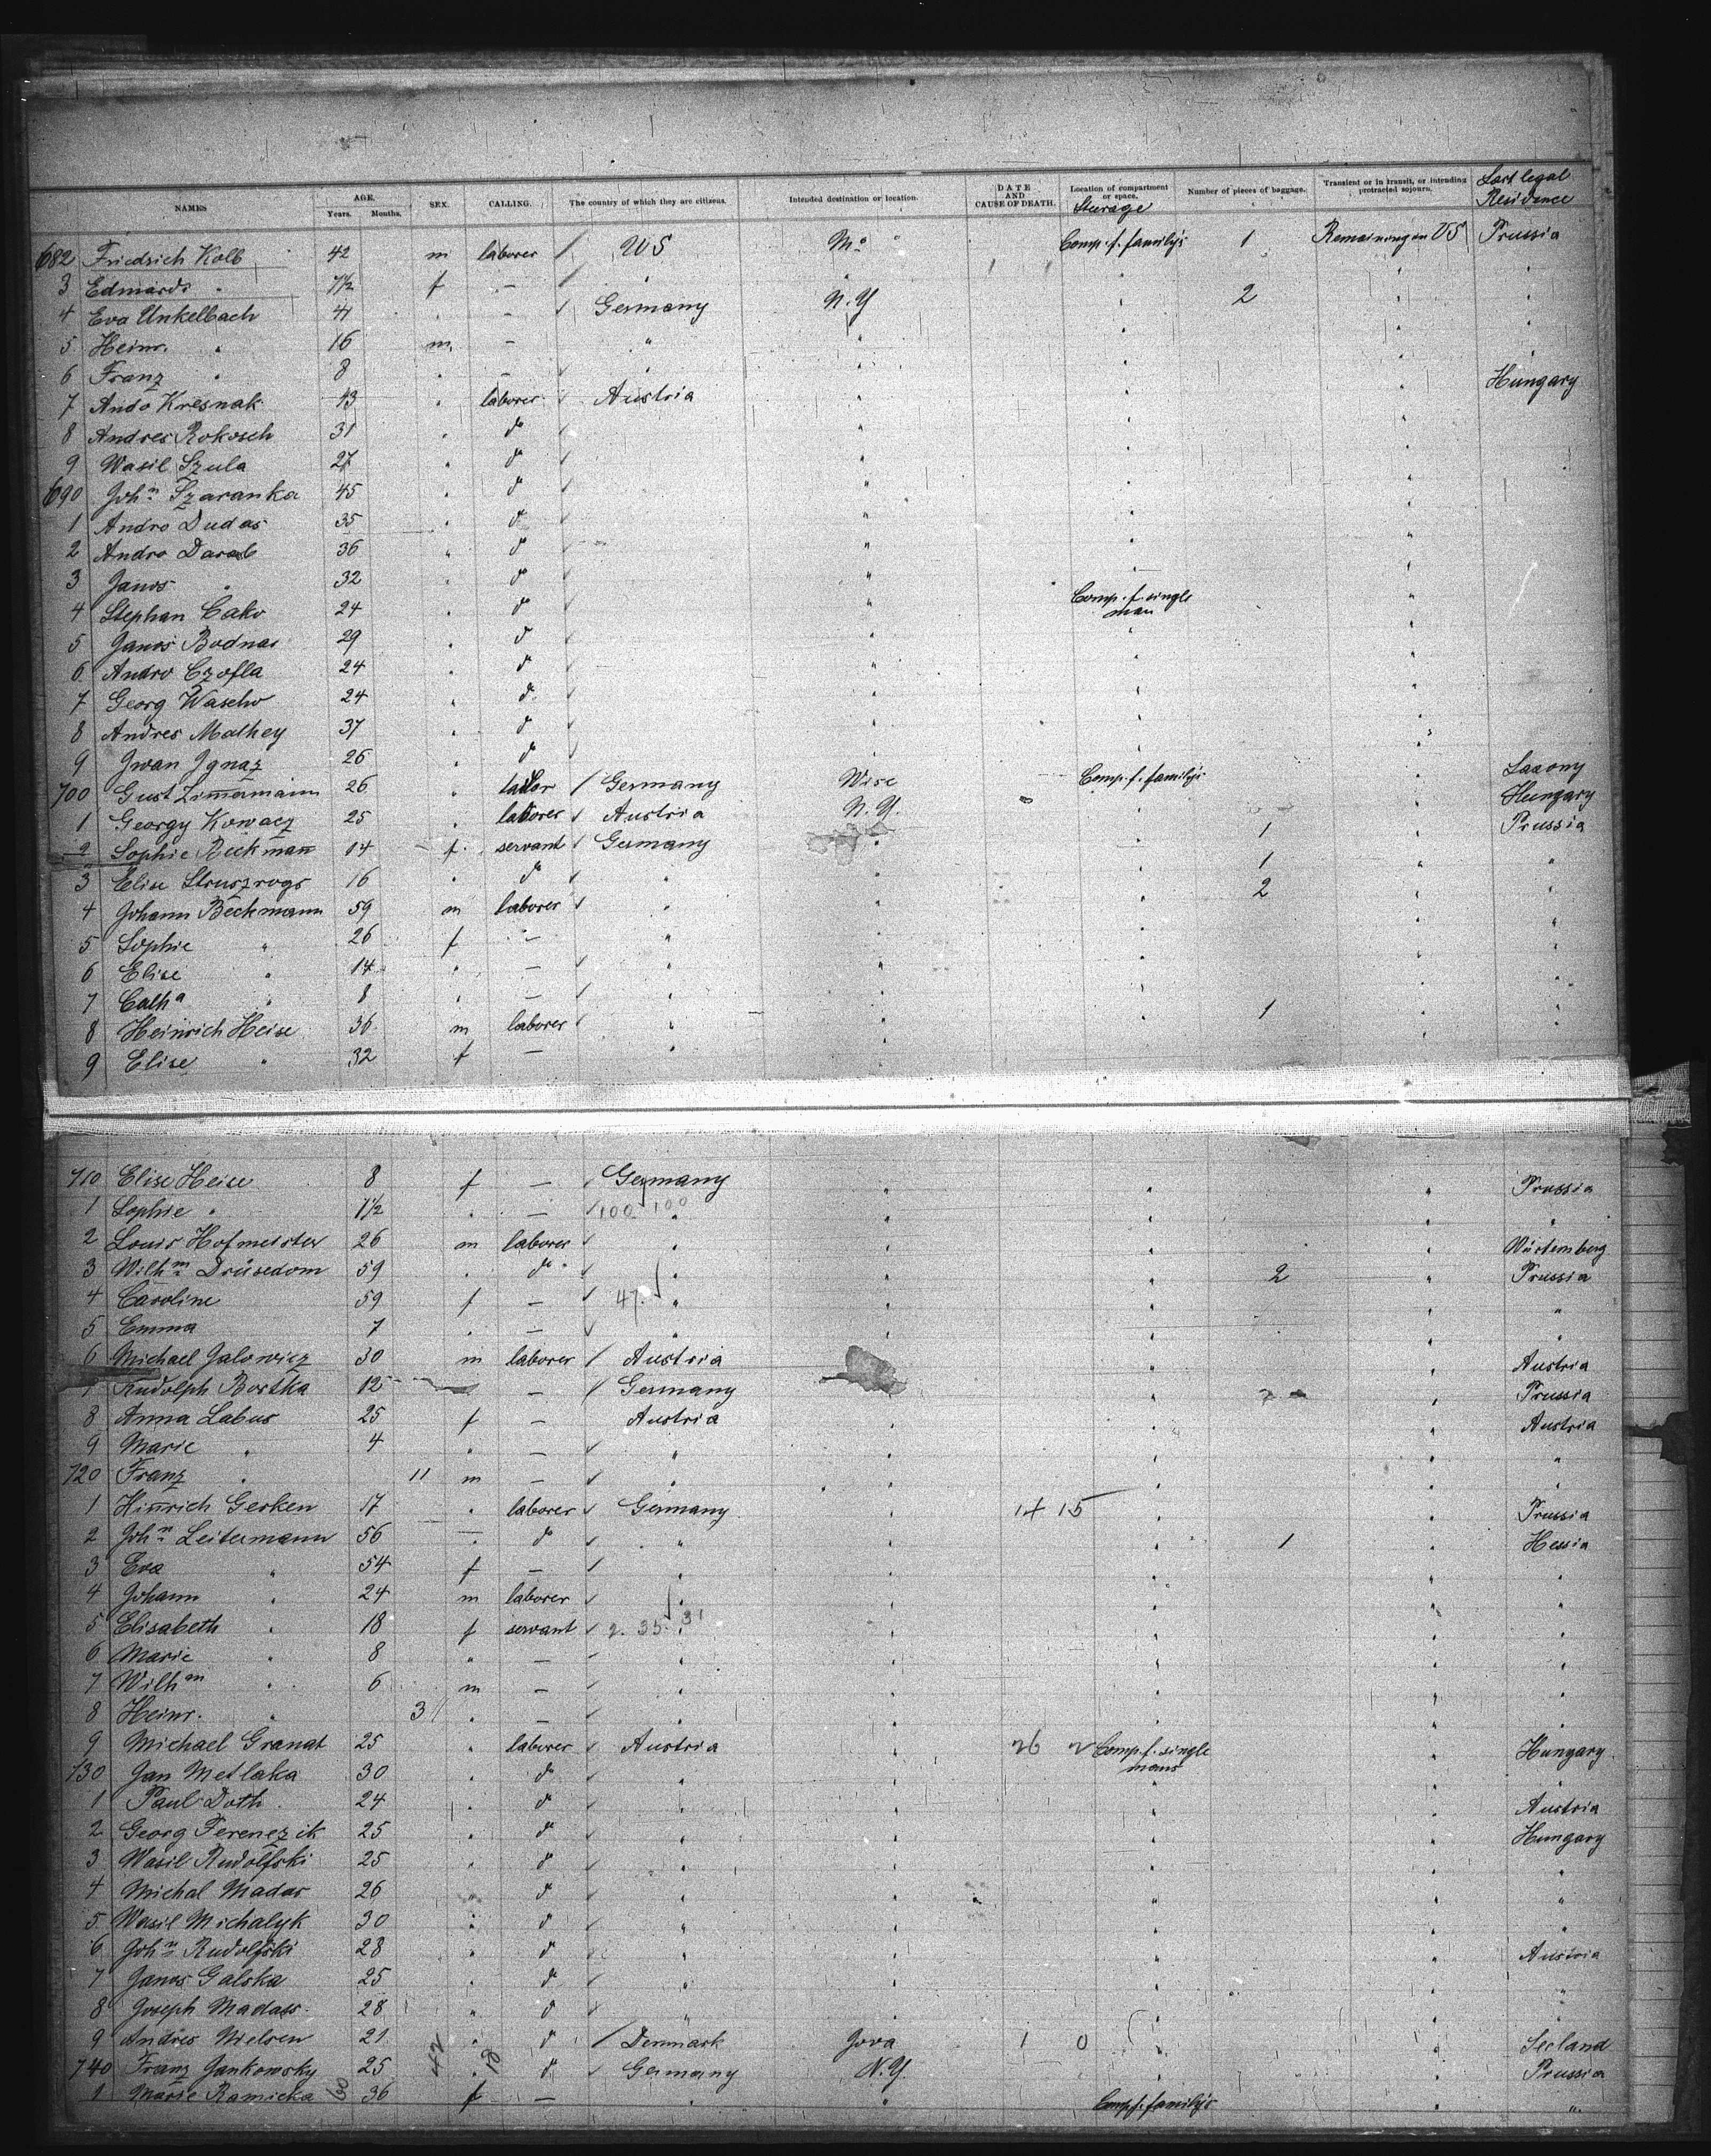 NAMES AGE. Years. Months. SEX. CALLING. The country of which they are citizens. Intended destination or location. DATE AND CAUSE OF DEATH. Location of compartment or space. Sturage Number of pieces of baggage. Transient or in transit, or intending protracted sojourn. Last legal Residence
682 Friedrich Kolb 42 m laborer / US Mo Comp. f. familys 1 Remaining on US Prussia
3 Edmards " f — / "
4 Eva Unkelbach 41 " — Germany N.Y " 2 " "
5 Heinr. " 16 m. — " " " " "
6 Franz " 8 " — " " " " "
7 Ando Kresnak 43 " laborer Austria " " " Hungary
8 Andres Rokosch 31 " do " " "
9 Wasil Szula 27 " do " " "
690 John Szaranka 45 " do " " "
1 Andro Dudas 35 " do " " "
2 Andro Darab 36 " do " " "
3 Janos " 32 " do " " "
4 Stephan Cako 24 " do " Comp. f. single man "
5 Janos Bodnar 29 " do " " "
6 Andro Czofla 24 " do " " "
7 Georg Wascho 24 " do " " "
8 Andres Mathey 37 " do " " "
9 Iwan Ignaz 26 " do " " "
700 Gust Zimmermann 26 " tailor / Germany Wisc Comp. f. familys Saxony
1 Georgy Kowacz 25 " laborer Austria N.Y. " " Hungary
2 Sophie Beckmann 14 f. servant Germany " " 1 " Prussia
3 Elise Struszrogs 16 " do " " " 1 " "
4 Johann Beckmann 59 m laborer " " " 2 " "
5 Sophie " 26 f — " " " " "
6 Elise " 14 " — " " " " "
7 Catha " 8 " — " " " " "
8 Heinrich Heise 36 m laborer " " " 1 " "
9 Elise " 32 f — " " " " "
710 Elise Heise 8 f — Germany " " " Prussia
1 Sophie " 1½ " — 100 100 " " " " "
2 Louis Hofmeister 26 m laborer " " " " Würtemberg
3 Wilhm Drüsedom 59 " do " " " 2 " Prussia
4 Caroline 59 f — 47 " " " " "
5 Emma 7 " — " " " " "
6 Michael Galowicz 30 m laborer / Austria " " " Austria
7 Rudolph Bortka 12 — / Germany " " 2 " Prussia
8 Anna Labus 25 f — Austria " " " Austria
9 Marie " 4 " — " " " " "
720 Franz " 11 m — " " " " "
1 Hinrich Gerken 17 " laborer Germany " 14 15 " " Prussia
2 John Leitermann 56 " do " " " 1 " Hessia
3 Eva " 54 f — " " " " "
4 Johann " 24 m laborer " " " " "
5 Elisabeth " 18 f servant 2. 35. 31 " " " " "
6 Marie " 8 " — " " " " "
7 Wilhm " 6 m — " " " " "
8 Heinr. " 3 " — " " " " "
9 Michael Granat 25 " laborer Austria " 26 2 Comp. f. single mans " Hungary
730 Jan Metlaka 30 " do " " " " "
1 Paul Doth 24 " do " " " " Austria
2 Georg Ferenczik 25 " do " " " " Hungary
3 Wasil Rudolfski 25 " do " " " " "
4 Michal Madar 26 " do " " " " "
5 Wasil Michalyk 30 " do " " " " "
6 John Rudolfski 28 " do " " " " Austria
7 Janos Galska 25 " do " " " " "
8 Joseph Madass 28 " do " " " " "
9 Andres Nielsen 21 " do / Denmark Jova 1 0 " " Seeland
740 Franz Jankowsky 25 " do Germany N.Y. " " Prussia
1 Marie Ramicka 36 f — " " Comp f. familys " "
60 42 18